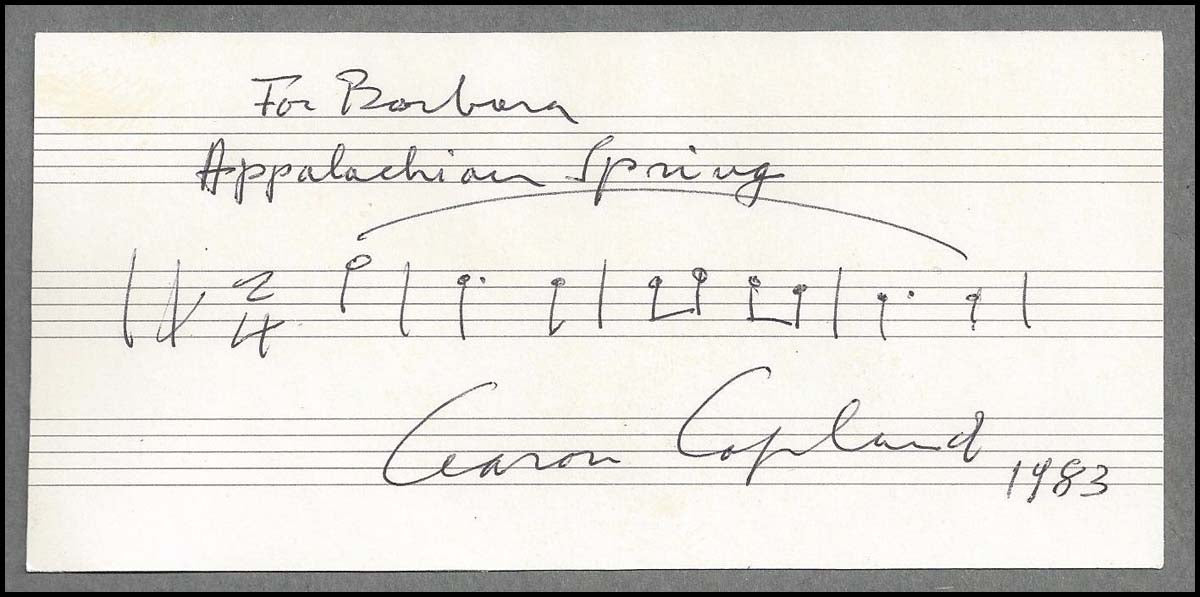 For Barbara
Appalachian Spring
2
4
Aaron Copland
1983